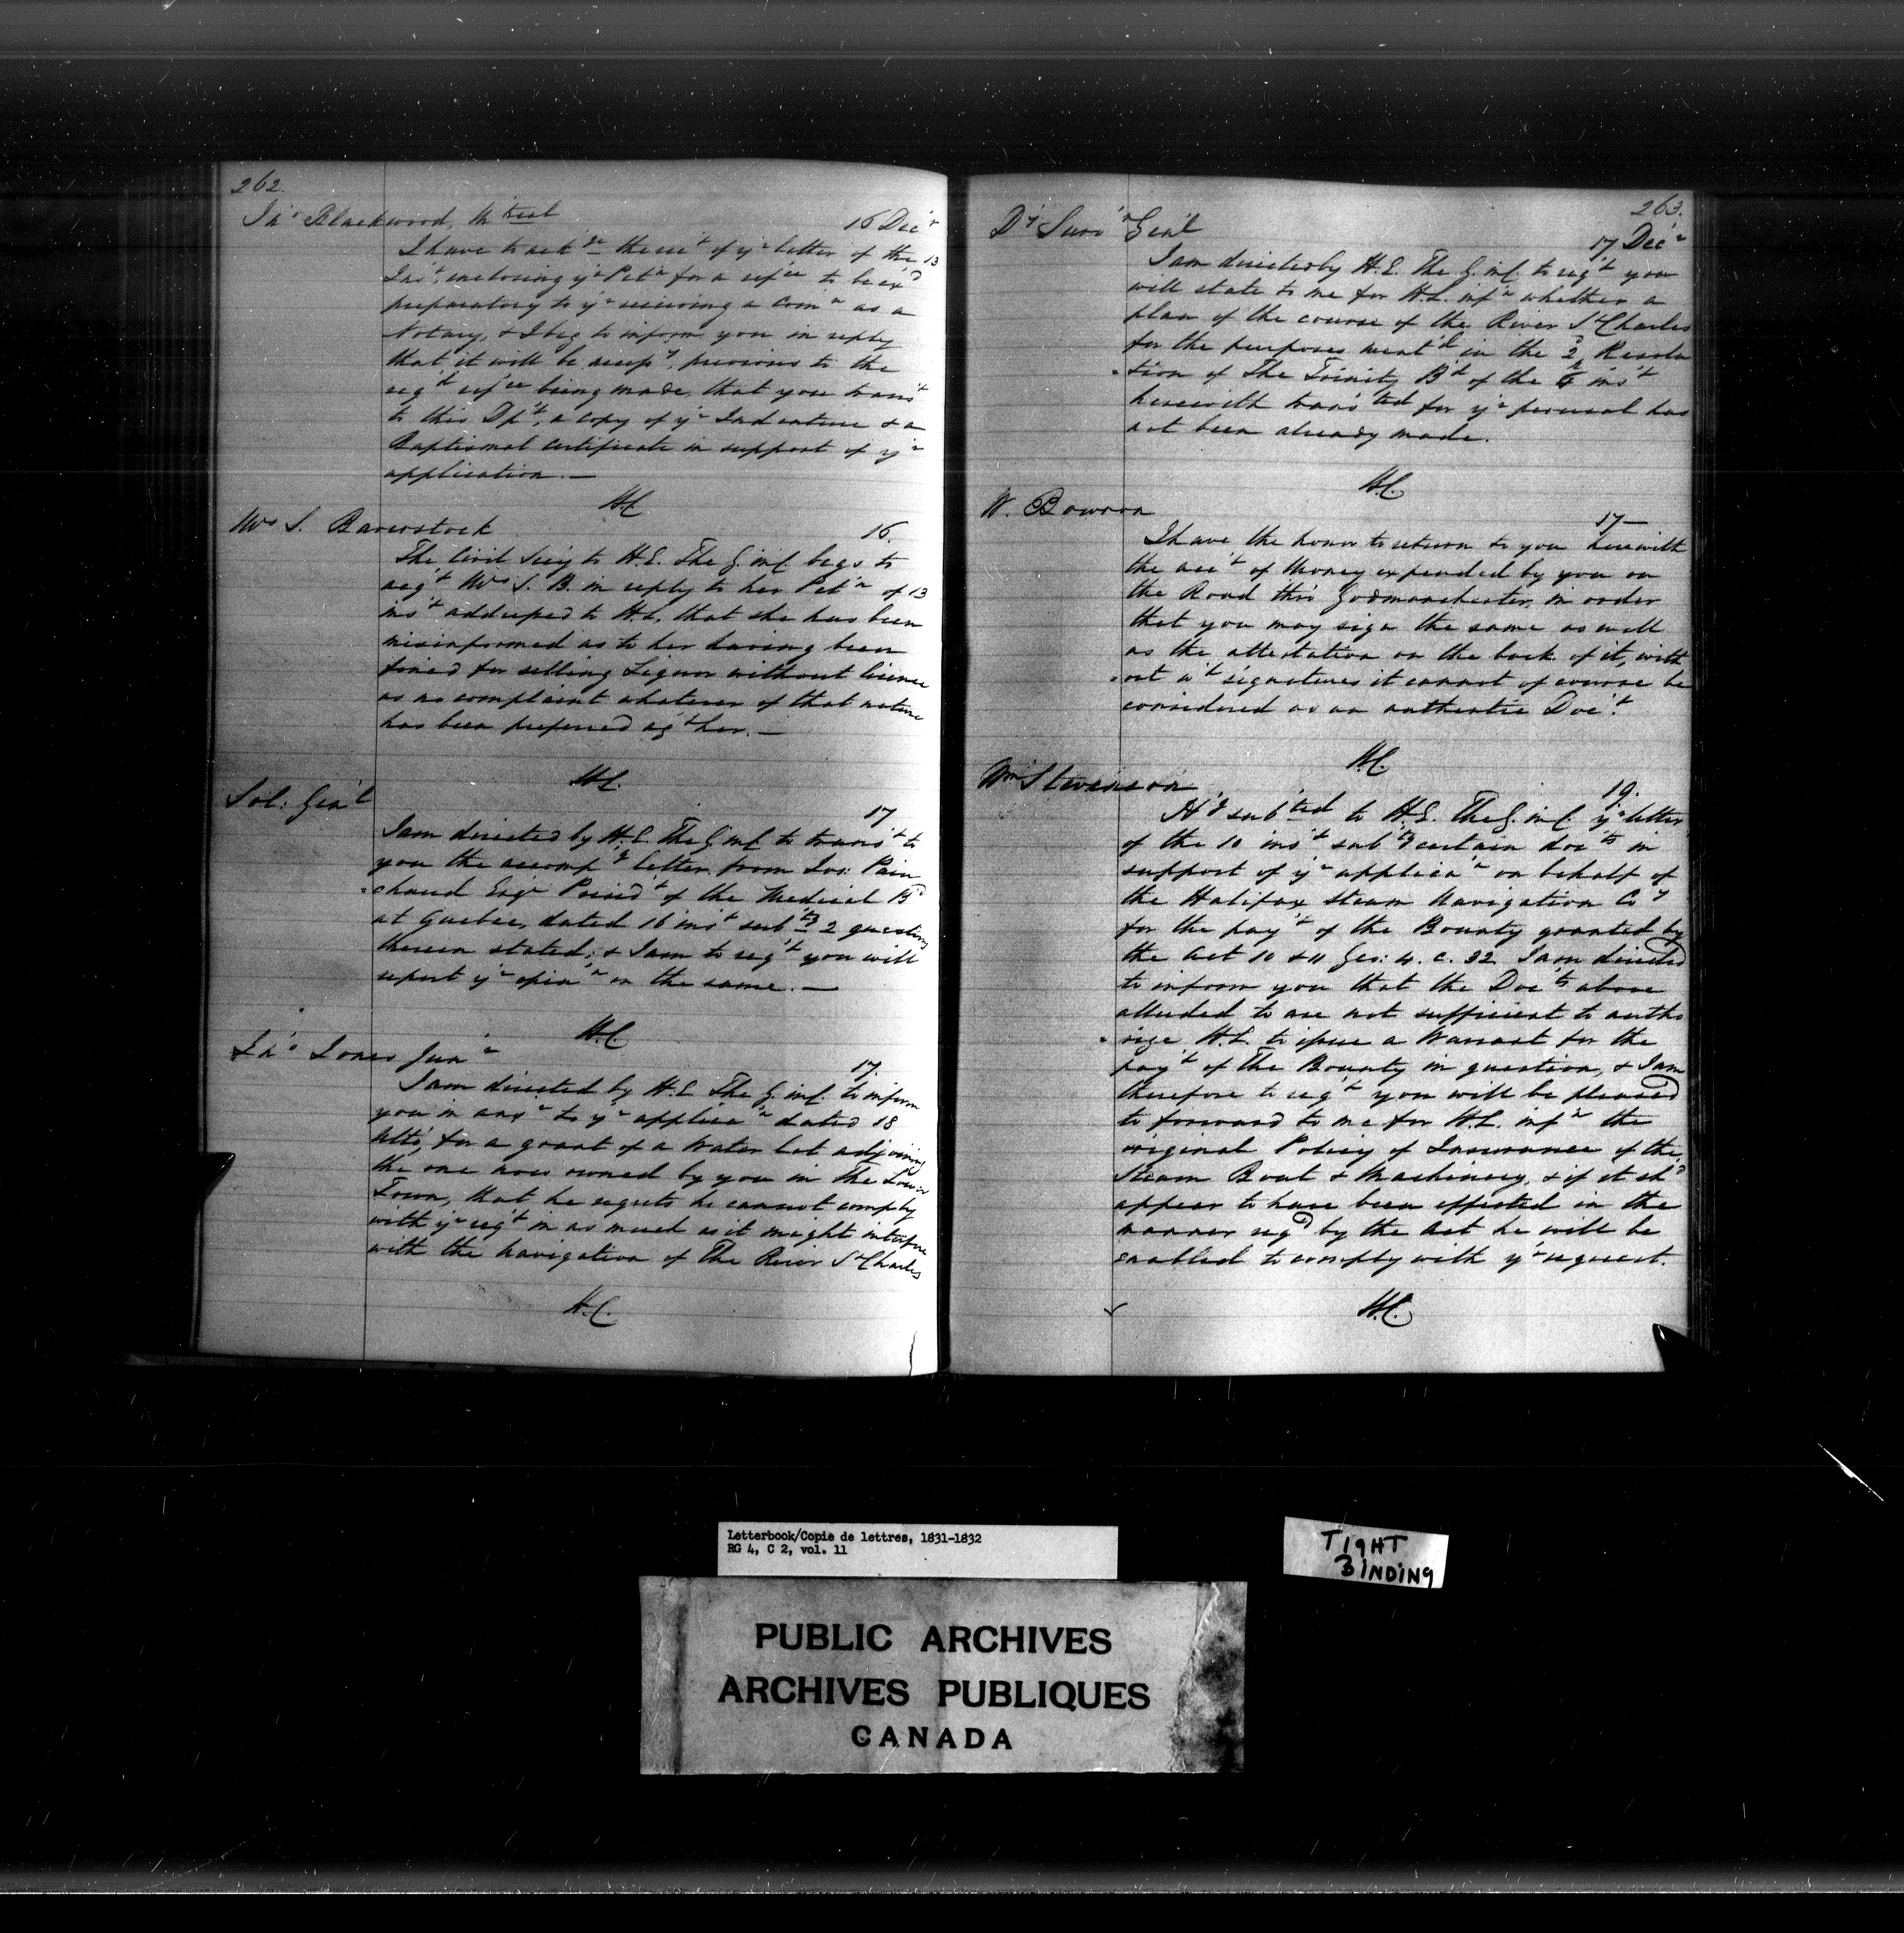 262.
Jnº Blackwood, Mtreal
16 Decr
I have to ackge the rect of yr letter of the 13
Inst, enclosing yr Petn for a refce to be exd
preparatory to yr receiving a Comn as a
Notary, & I beg to inform you in reply
that it will be necessy, previous to the
reqd refce being made, that you transt
to this Dpt, a copy of yr Indenture & a
Baptismal Certificate in support of yr
application. —
H.C.
Mrs S. Baverstock
16.
The Civil Secy to H.E. The G. in C. begs to
acqt Mrs S. B. in reply to her Petn of 13
inst addressed to H.E. that she has been
misinformed as to her having been
fined for selling Liquor without licence
as no complaint whatever of that nature
has been preferred agt her. —
H.C.
Sol: Genl
17
I am directed by H.E. The G. in C. to transt to
you the accompg letter from Jos: Pain
=chaud Esqr Presidt of the Medical Bd
at Quebec, dated 16 inst subtg 2 questions
therein stated; & I am to reqt you will
report yr opinn on the same. —
H.C.
Jnº Jones Junr
17.
I am directed by H.E. The G. in C. to inform
you in ansr to yr applican dated 18
ultº, for a grant of a Water Lot adjoining
the one now owned by you in the Lower
Town, that he regrets he cannot comply
with yr reqt in as much as it might interfere
with the Navigation of The River St Charles
H.C.
263.
Dy Survr Genl
17 Decr
I am directed by H.E. The G. in C. to reqt you
will state to me for H.E. infn whether a
plan of the course of the River St Charles
for the purposes mentd in the 2d Resolu
=tion of The Trinity Bd of the 6th inst
herewith transted for yr perusal has
not been already made.
H.C.
W. Bowron
17—
I have the honor to return to you herewith
the acct of Money expended by you on
the Road thro' Godmanchester, in order
that you may sign the same as well
as the attestation on the back of it, with
=out wt signatures it cannot of course be
considered as an authentic Doct.
H.C.
Wm Stevenson
19.
Hg subted to H.E. The G. in C. yr letter
of the 10 inst subtg certain docts in
support of yr applican on behalf of
the Halifax Steam Navigation Coy
for the payt of the Bounty granted by
the Act 10 & 11 Geo: 4. c. 32 I am directed
to inform you that the Docts above
alluded to are not sufficient to autho
=rize H.E. to issue a Warrant for the
payt of the Bounty in question, & I am
therefore to reqt you will be pleased
to forward to me for H.E. infn the
original Policy of Insurance of the
Steam Boat & Machinery, & if it shd
appear to have been effected in the
manner reqd by the Act he will be
enabled to comply with yr request.
H.C.
Letterbook/Copie de lettres, 1831-1832
RG 4, C 2, vol. 11
TIGHT
BINDING
PUBLIC ARCHIVES
ARCHIVES PUBLIQUES
CANADA